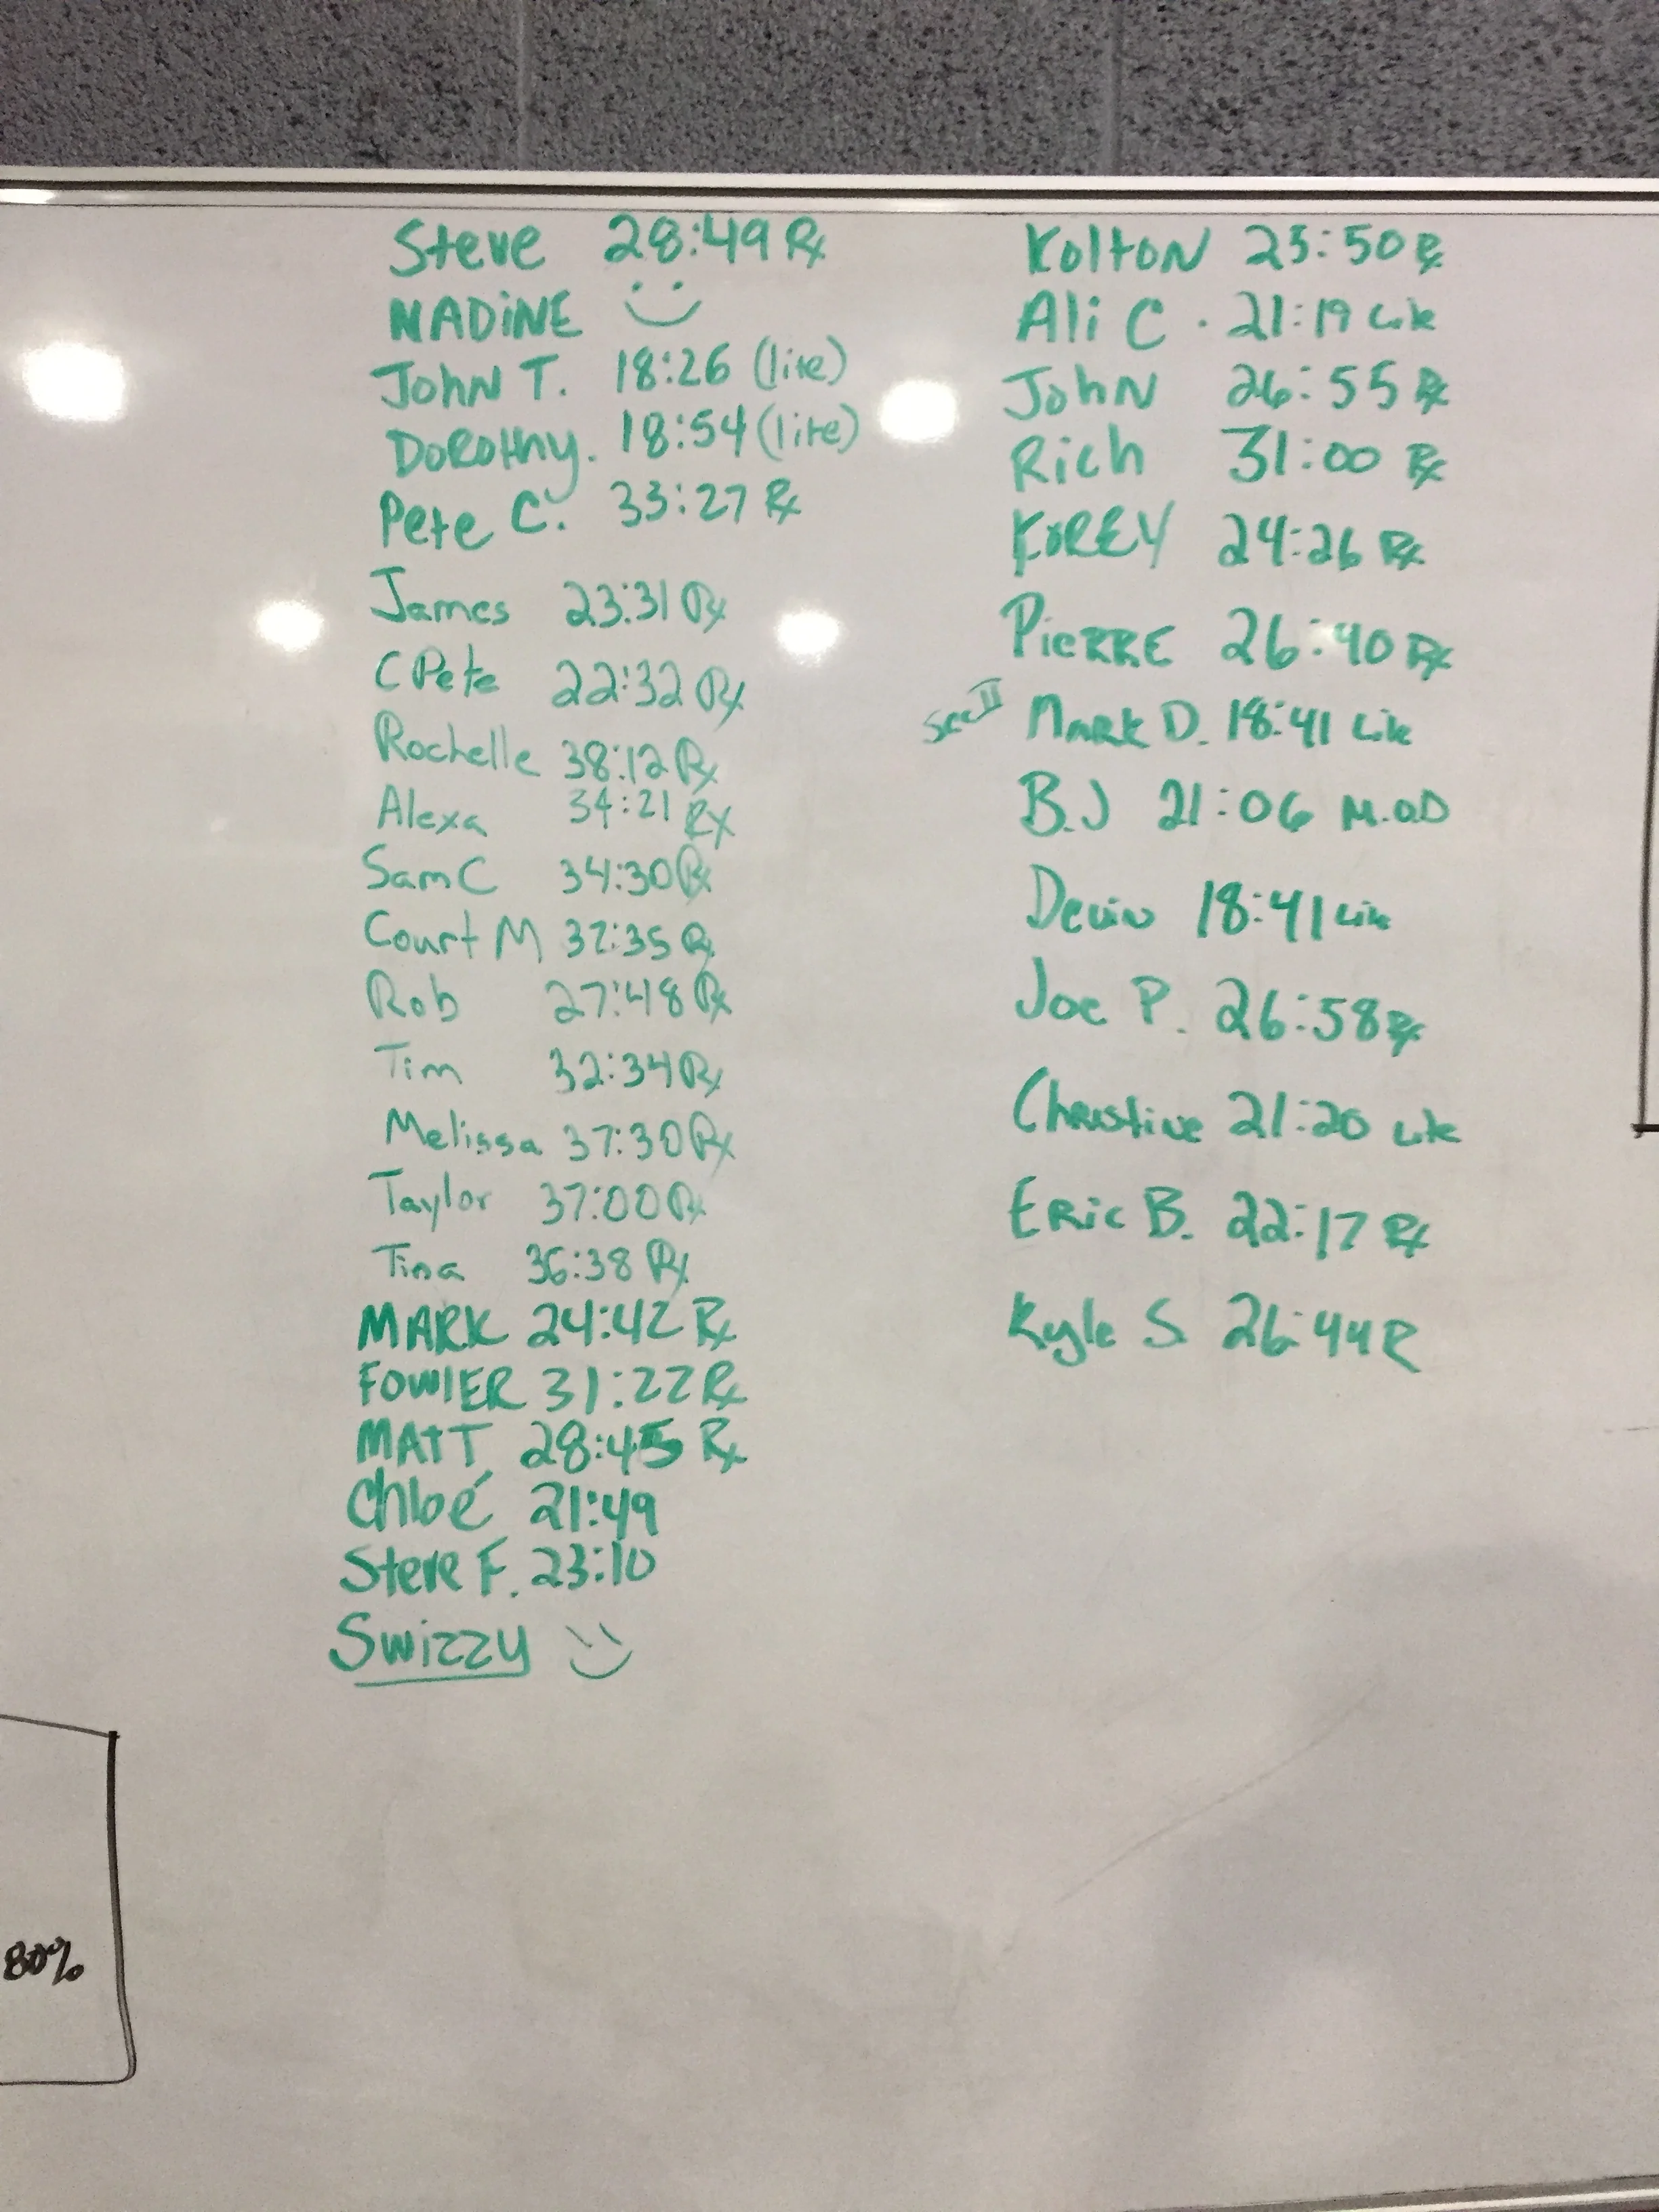 Steve 28:49 Rx
NADiNE
John T. 18:26 (lite)
DOROthy. 18:54 (lite)
Pete C. 33:27 Rx
James 23:31 Rx
C Pete 22:32 Rx
Rochelle 38:12 Rx
Alexa 34:21 Rx
Sam C 34:30 Rx
Court M 32:35 Rx
Rob 27:48 Rx
Tim 32:34 Rx
Melissa 37:30 Rx
Taylor 37:00 Rx
Tina 36:38 Rx
MARK 24:42 Rx
FOWlER 31:22 Rx
MAtT 28:45 Rx
Chloé 21:49
Steve F. 23:10
Swizzy
80%
KoltoN 25:50 Rx
Ali C. 21:19 Lite
JohN 26:55 Rx
Rich 31:00 Rx
KOREY 24:26 Rx
PieRRE 26:40 Rx
MARK D. 18:41 Lite
B.J 21:06 M.O.D
Devin 18:41 Lite
Joe P. 26:58 Rx
Christine 21:20 Lite
ERic B. 22:17 Rx
Kyle S. 26:44 R